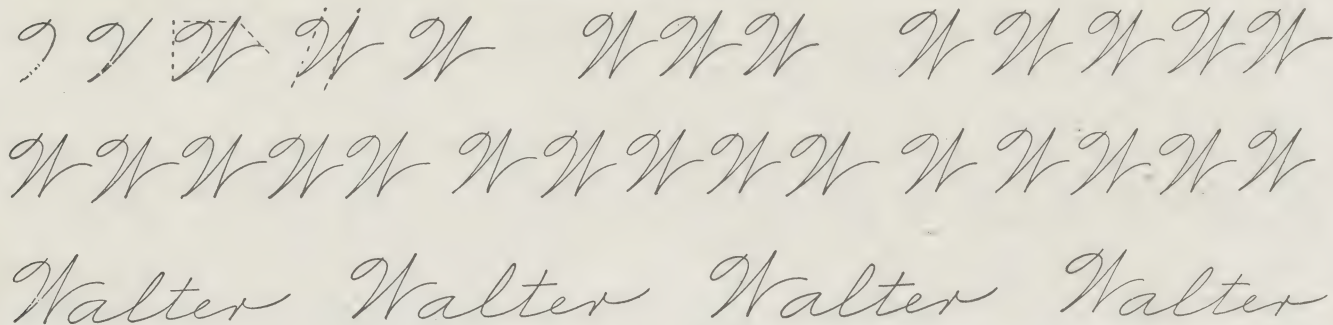 W W W W W W W W W W W
W W W W W W W W W W W W W W W
Walter Walter Walter Walter